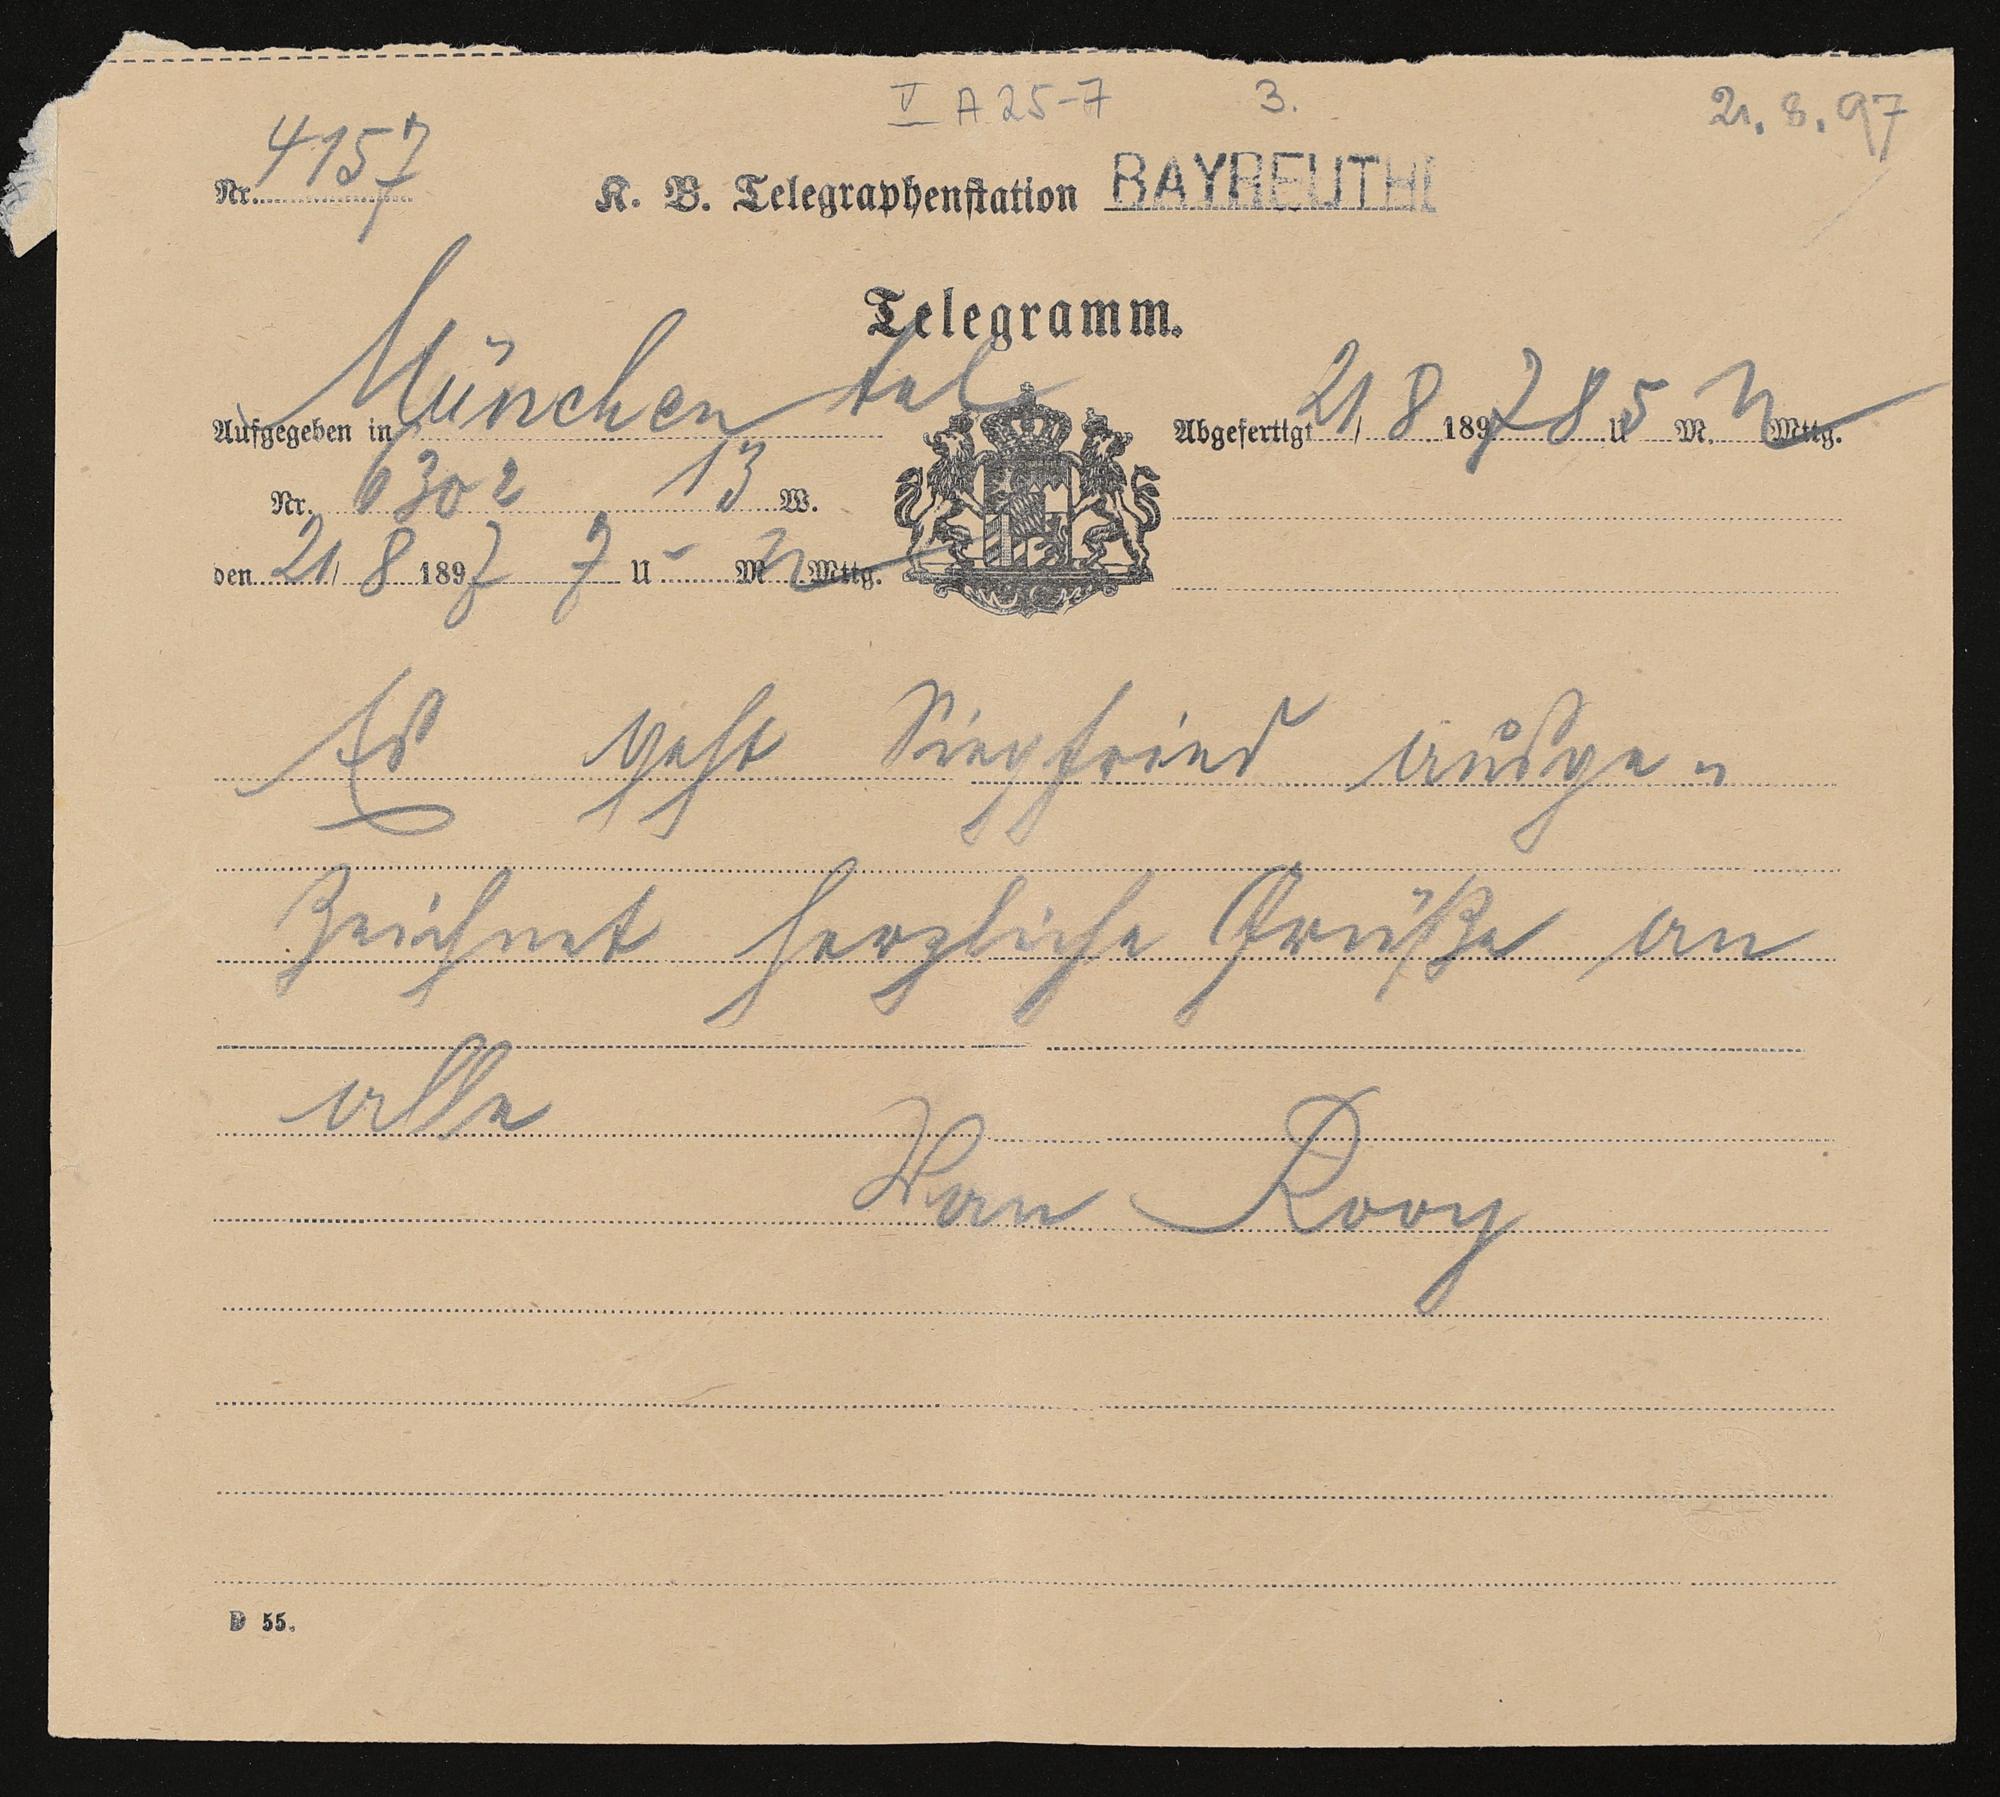 V A 25-7 3. 21. 8. 97
Nr. 4157 K. B. Telegraphenstation BAYREUTH
Telegramm.
Aufgegeben in München tel Abgefertigt 21/8 1897 8 U 5 M. N Mttg.
Nr. 6302 13 W.
den 21/8 1897 7 U - M N Mttg.
Es geht Siegfried ausge=
zeichnet herzliche Grüße an
alle
Van Rooy
D 55.